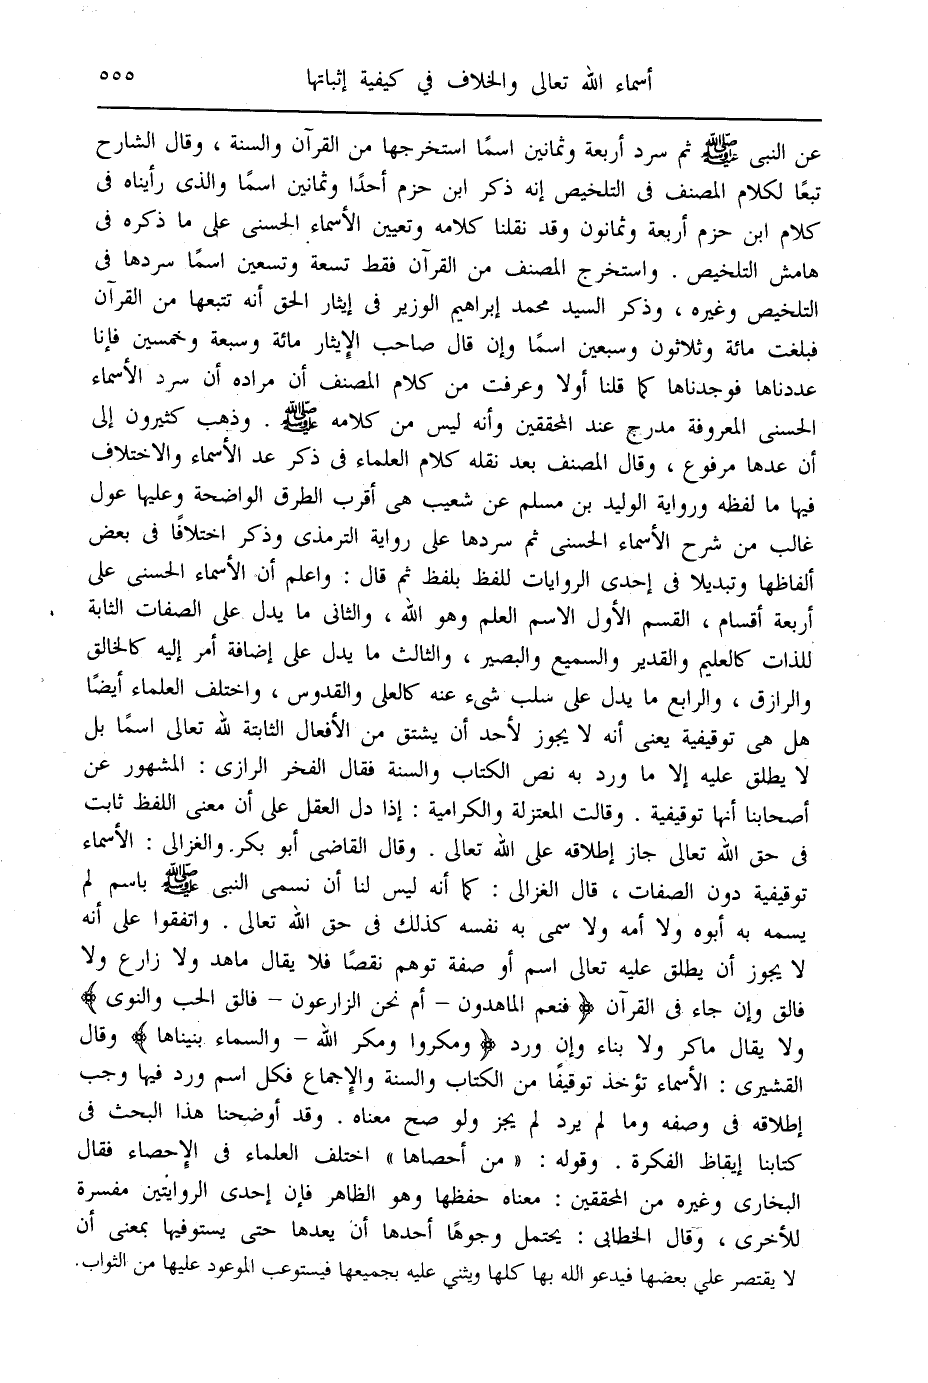 أسماء الله تعالى والخلاف في كيفية إثباتها ٥٥٥
عن النبى ﷺ ثم سرد أربعة وثمانين اسمًا استخرجها من القرآن والسنة ، وقال الشارح
تبعًا لكلام المصنف فى التلخيص إنه ذكر ابن حزم أحدًا وثمانين اسمًا والذى رأيناه فى
كلام ابن حزم أربعة وثمانون وقد نقلنا كلامه وتعيين الأسماء الحسنى على ما ذكره فى
هامش التلخيص . واستخرج المصنف من القرآن فقط تسعة وتسعين اسمًا سردها فى
التلخيص وغيره ، وذكر السيد محمد إبراهيم الوزير فى إيثار الحق أنه تتبعها من القرآن
فبلغت مائة وثلاثون وسبعين اسمًا وإن قال صاحب الإيثار مائة وسبعة وخمسين فإنا
عددناها فوجدناها كما قلنا أولا وعرفت من كلام المصنف أن مراده أن سرد الأسماء
الحسنى المعروفة مدرج عند المحققين وأنه ليس من كلامه ﷺ . وذهب كثيرون إلى
أن عدها مرفوع ، وقال المصنف بعد نقله كلام العلماء فى ذكر عد الأسماء والاختلاف
فيها ما لفظه ورواية الوليد بن مسلم عن شعيب هى أقرب الطرق الواضحة وعليها عول
غالب من شرح الأسماء الحسنى ثم سردها على رواية الترمذى وذكر اختلافًا فى بعض
ألفاظها وتبديلا فى إحدى الروايات للفظ بلفظ ثم قال : واعلم أن الأسماء الحسنى على
أربعة أقسام ، القسم الأول الاسم العلم وهو الله ، والثانى ما يدل على الصفات الثابة
للذات كالعليم والقدير والسميع والبصير ، والثالث ما يدل على إضافة أمر إليه كالخالق
والرازق ، والرابع ما يدل على سلب شىء عنه كالعلى والقدوس ، واختلف العلماء أيضًا
هل هى توقيفية يعنى أنه لا يجوز لأحد أن يشتق من الأفعال الثابتة لله تعالى اسمًا بل
لا يطلق عليه إلا ما ورد به نص الكتاب والسنة فقال الفخر الرازى : المشهور عن
أصحابنا أنها توقيفية . وقالت المعتزلة والكرامية : إذا دل العقل على أن معنى اللفظ ثابت
فى حق الله تعالى جاز إطلاقه على الله تعالى . وقال القاضى أبو بكر والغزالى : الأسماء
توقيفية دون الصفات ، قال الغزالى : كما أنه ليس لنا أن نسمى النبى ﷺ باسم لم
يسمه به أبوه ولا أمه ولا سمى به نفسه كذلك فى حق الله تعالى . واتفقوا على أنه
لا يجوز أن يطلق عليه تعالى اسم أو صفة توهم نقصًا فلا يقال ماهد ولا زارع ولا
فالق وإن جاء فى القرآن ﴿ فنعم الماهدون – أم نحن الزارعون – فالق الحب والنوى ﴾
ولا يقال ماكر ولا بناء وإن ورد ﴿ ومكروا ومكر الله – والسماء بنيناها ﴾ وقال
القشيرى : الأسماء تؤخذ توقيفًا من الكتاب والسنة والإجماع فكل اسم ورد فيها وجب
إطلاقه فى وصفه وما لم يرد لم يجز ولو صح معناه . وقد أوضحنا هذا البحث فى
كتابنا إيقاظ الفكرة . وقوله : « من أحصاها » اختلف العلماء فى الإحصاء فقال
البخارى وغيره من المحققين : معناه حفظها وهو الظاهر فإن إحدى الروايتين مفسرة
للأخرى ، وقال الخطابى : يحتمل وجوهًا أحدها أن يعدها حتى يستوفيها بمعنى أن
لا يقتصر علي بعضها فيدعو الله بها كلها ويثني عليه بجميعها فيستوعب الموعود عليها من الثواب.